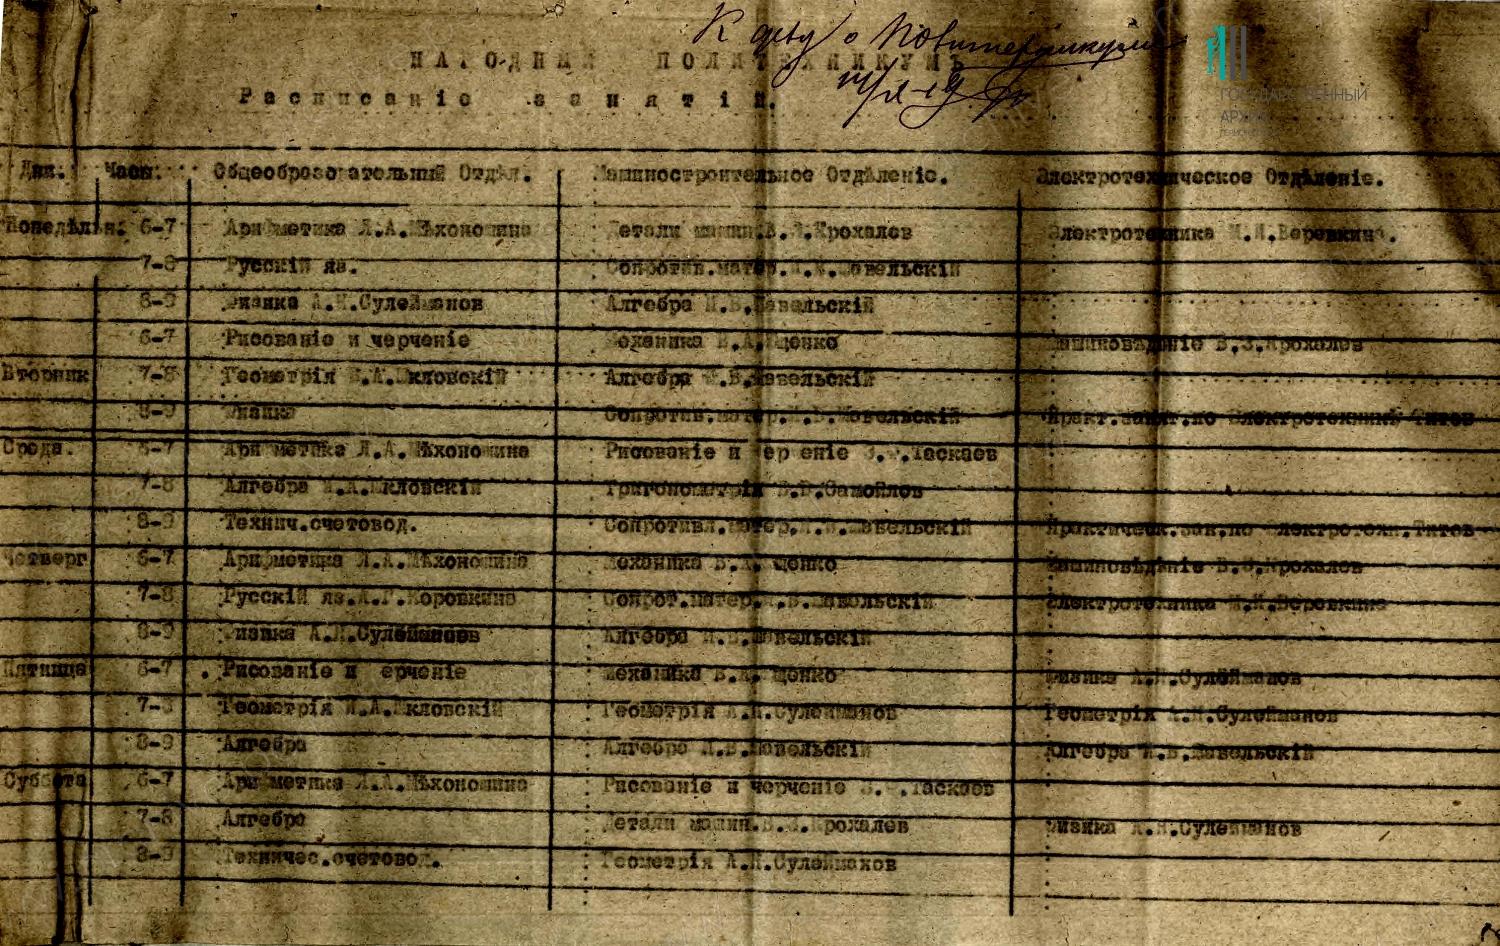 К делу о Политехникуме
НАРОДНЫЙ ПОЛИТЕХНИКУМЪ
Расписаніе занятій.
ГОСУДАРСТВЕННЫЙ
АРХИВ
Дни. Часы. Общеобразовательный Отдѣл. Машиностроительное Отдѣленіе. Электротехническое Отдѣленіе.
Понедѣльн. 6-7 Арифметика Л.А.Мѣхоношина Детали машин.В.З.Крохалев Электротехника М.И.Веревкина.
7-8 Русскій яз. Сопротив.матер. Шавельскій
8-9 Физика А.И.Сулейманов Алгебра И.В.Шавельскій
6-7 Рисованіе и черченіе Механика В.А.Ищенко Машиновѣдѣніе В.З.Крохалев
Вторник 7-8 Геометрія И.А.Шкловскій Алгебра И.В.Шавельскій
8-9 Физика Сопротив.матер.И.В.Шавельскій Практ.занят.по Электротехникѣ Титов
Среда. 6-7 Арифметика Л.А.Мѣхоношина Рисованіе и черченіе Таскаев
7-8 Алгебра И.А.Шкловскій Тригонометрія В.В.Самойлов
8-9 Технич.счетовод. Сопротивл.матер.И.В.Шавельскій Практическ.зан.по электротехн.Титов
Четверг 6-7 Арифметика Л.А.Мѣхоношина Механика В.А.Ищенко Машиновѣдѣніе В.З.Крохалев
7-8 Русскій яз.А.Г.Коровкина Сопрот.матер.И.В.Шавельскій Электротехника М.И.Веревкина
8-9 Физика А.И.Сулейманов Алгебра И.В.Шавельскій
Пятница 6-7 Рисованіе и черченіе Механика В.А.Ищенко Физика А.И.Сулейманов
7-8 Геометрія И.А.Шкловскій Геометрія А.И.Сулейманов Геометрія А.И.Сулейманов
8-9 Алгебра Алгебра И.В.Шавельскій Алгебра И.В.Шавельскій
Суббота 6-7 Арифметика Л.А.Мѣхоношина Рисованіе и черченіе Таскаев
7-8 Алгебра Детали машин.В.З.Крохалев Физика А.И.Сулейманов
8-9 Техничес.счетовод. Геометрія А.И.Сулейманов